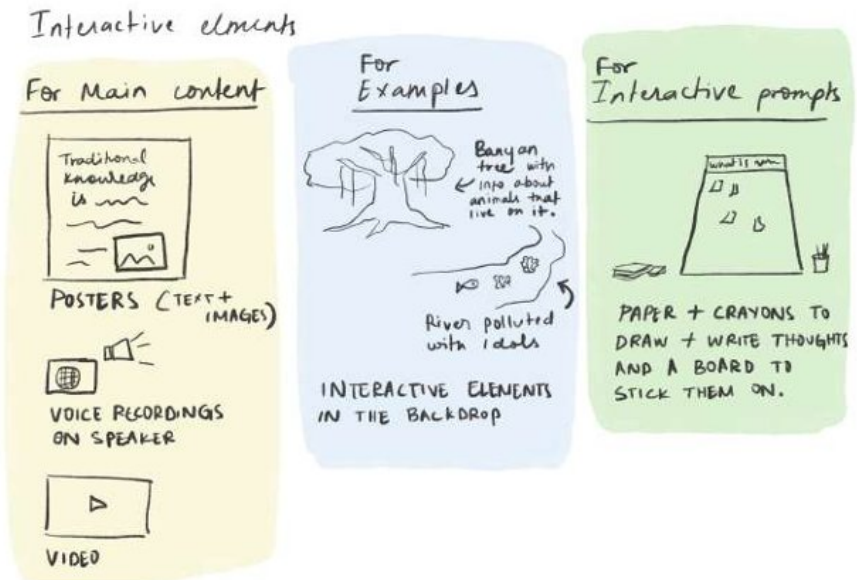 Interactive elments
For Main content
Traditional
knowledge
is
POSTERS (TEXT +
IMAGES)
VOICE RECORDINGS
ON SPEAKER
VIDEO
For
Examples
Banyan
tree with
info about
animals that
live on it.
River polluted
with idols
INTERACTIVE ELEMENTS
IN THE BACKDROP
For
Interactive prompts
what is
PAPER + CRAYONS TO
DRAW + WRITE THOUGHTS
AND A BOARD TO
STICK THEM ON.